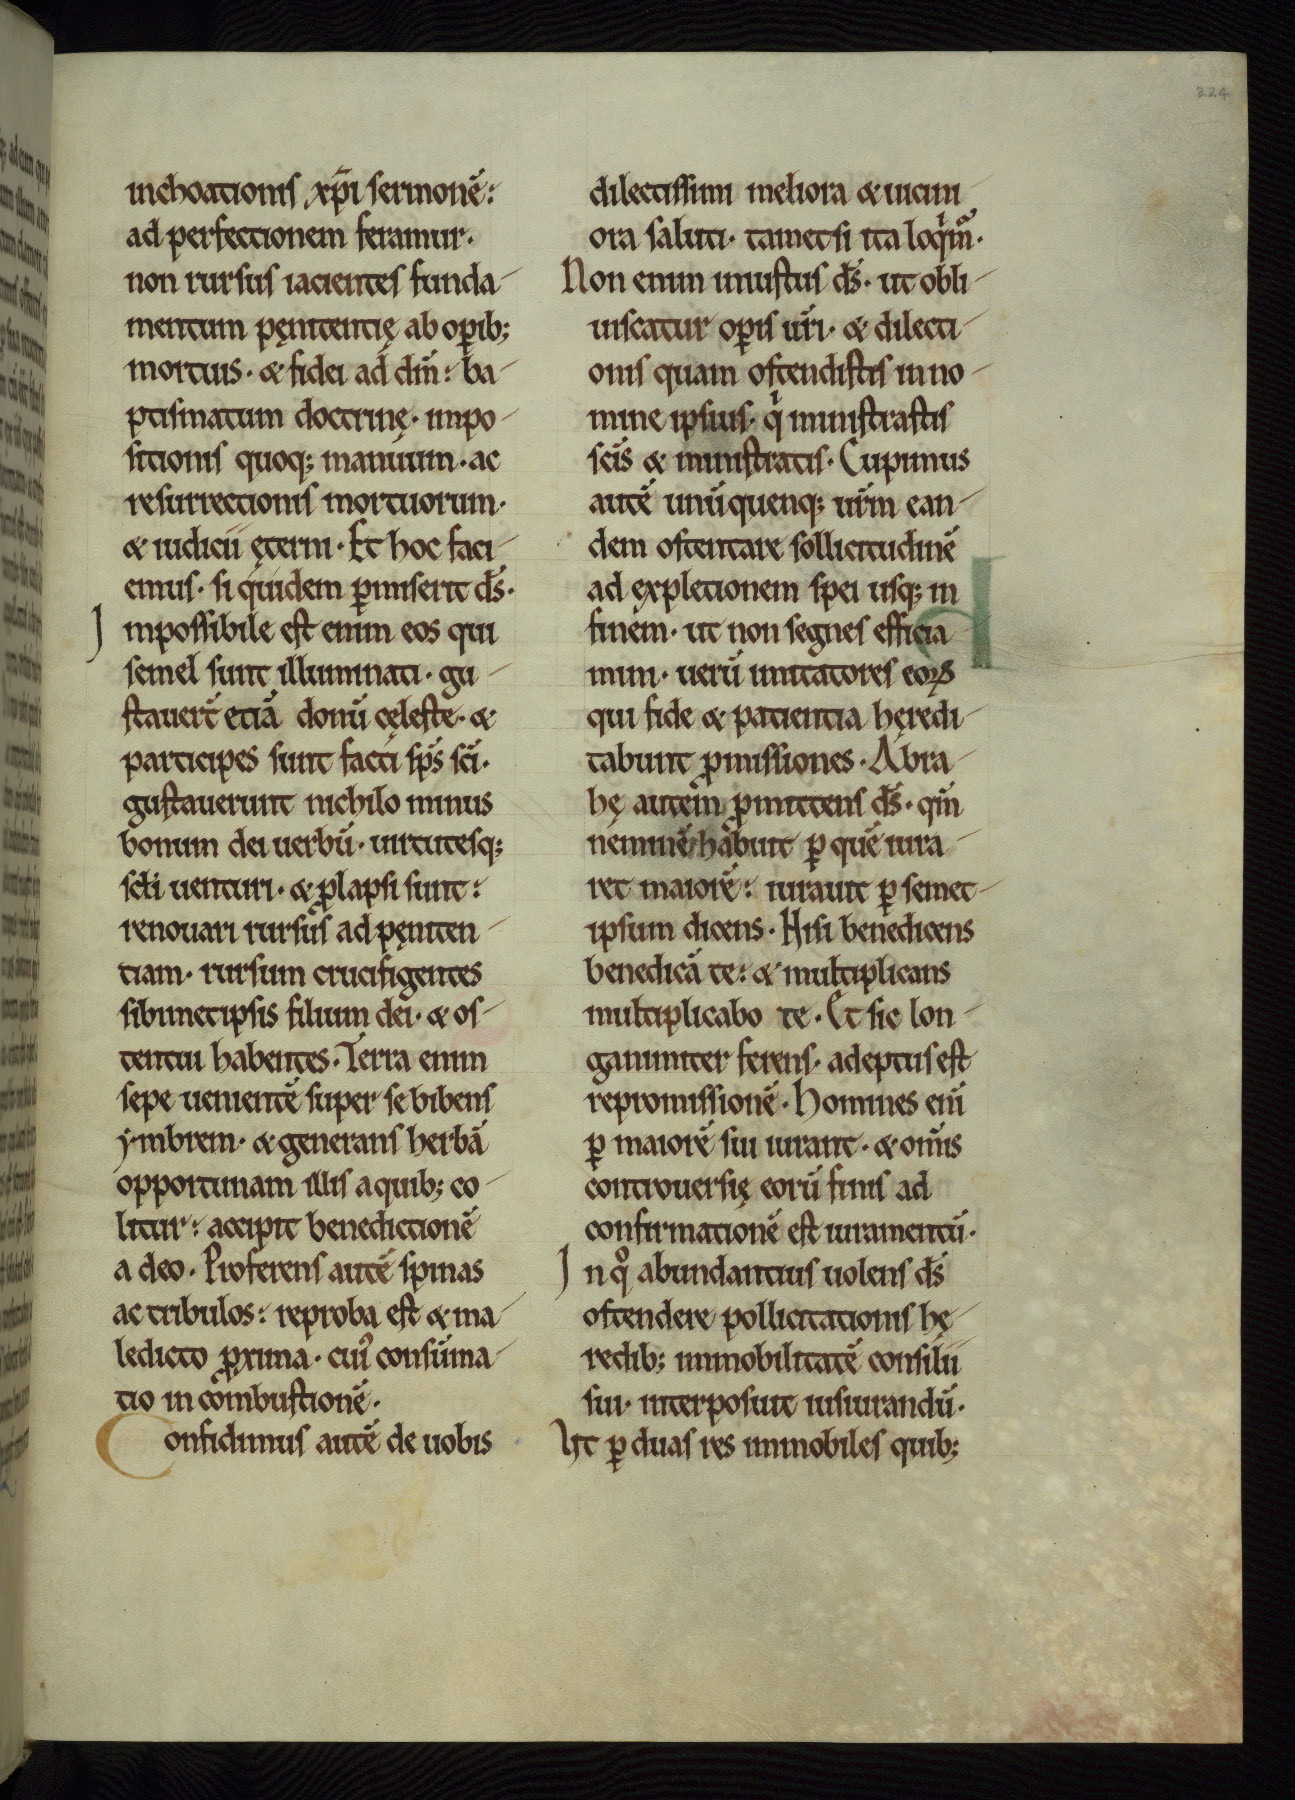 224
inchoationis xp̄i sermonē:
ad perfectionem feramur·
non rursus iacientes funda-
mentum pęnitentię ab op̄ib;
mortuis· & fidei ad dm̄: ba-
ptismatum doctrinę· impo-
sitionis quoq; manuum· ac
resurrectionis mortuorum·
& iudicii ęterni· Et hoc faci-
emus· si quidem ꝑmiserit ds̄·
Inpossibile est enim eos qui
semel sunt illuminati· gu-
stauer̄t etiā donū cęleste· &
participes sunt facti sp̄s sc̄i·
gustauerunt nichilo minus
bonum dei uerbū· uirtutesq;
sc̄li uenturi· & ꝓlapsi sunt:
renouari rursus ad pęniten-
tiam· rursum crucifigentes
sibimetipsis filium dei· & os-
tentui habentes· Terra enim
sepe uenientē super se bibens
ymbrem· & generans herbā
opportunam illis a quib; co-
litur: accipit benedictionē
a deo· Proferens autē spinas
ac tribulos: reproba est & ma-
ledicto ꝓxima· cui᾽ consūma-
tio in combustionē·
Confidimus autē de uobis
dilectissimi meliora & uicini-
ora saluti· tametsi ita loq̇im̄᾽·
Non enim iniustus ds̄· ut obli-
uiscatur op̄is ur̄i· & dilecti-
onis quam ostendistis in no-
mine ipsius· q̇ ministrastis
sc̄is & ministratis· Cupimus
autē unūquenq; ur̄m ean-
dem ostentare sollicitudinē
ad expletionem spei usq; in
finem· ut non segnes efficia
mini· uerū imitatores eoꝝ
qui fide & patientia hęredi-
tabunt ꝓmissiones· Abra-
hę autem ꝓmittens ds̄· qm̄
neminē habuit ꝑ quē iura-
ret maiorē: iurauit ꝑ semet-
ipsum dicens· Nisi benedicens
benedicā te: & multiplicans
multiplicabo te· Et sic lon-
ganimiter ferens· adeptus est
repromissionē· Homines eni᷄
ꝑ maiorē sui iurant· & om̄is
controuersię eorū finis ad
confirmationē est iuramentū·
In qͦ abundantius uolens ds̄
ostendere pollicitationis hę-
redib; immobilitatē consilii
sui· interposuit iusiurandū·
Ut ꝑ duas res immobiles quib;